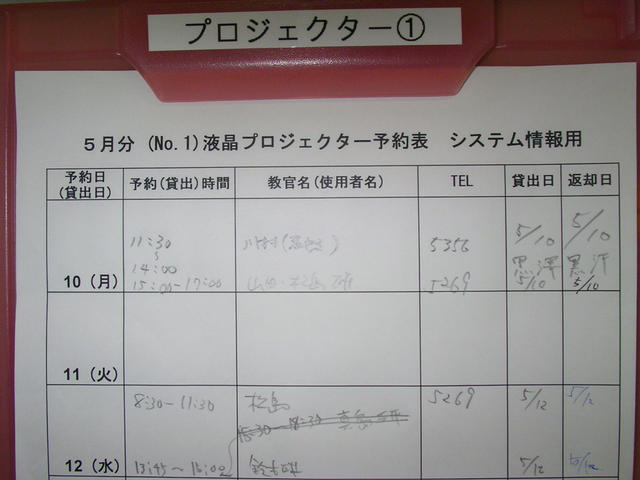 プロジェクター①
5月分 (No.1)液晶プロジェクター予約表 システム情報用
予約日
(貸出日)
予約(貸出)時間
教官名(使用者名)
TEL
貸出日
返却日
10(月)
11:30
~
14:00
5356
5/10
5/10
黒澤
黒澤
15:00-17:00
5269
5/10
5/10
11(火)
12(水)
8:30-11:30
松島
5269
5/12
5/12
13:45~16:00
5/12